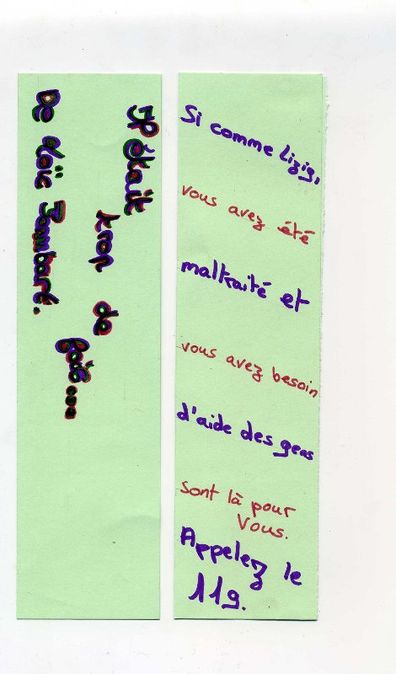 Il était trop de fois...
De Loïc Jambart.
Si comme
vous avez été
maltraité et
vous avez besoin
d'aide des gens
sont là pour
vous.
Appelez le
119.